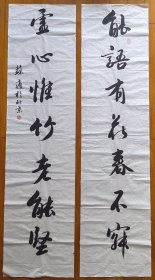 能語有花春不寂
靈心惟竹老能堅